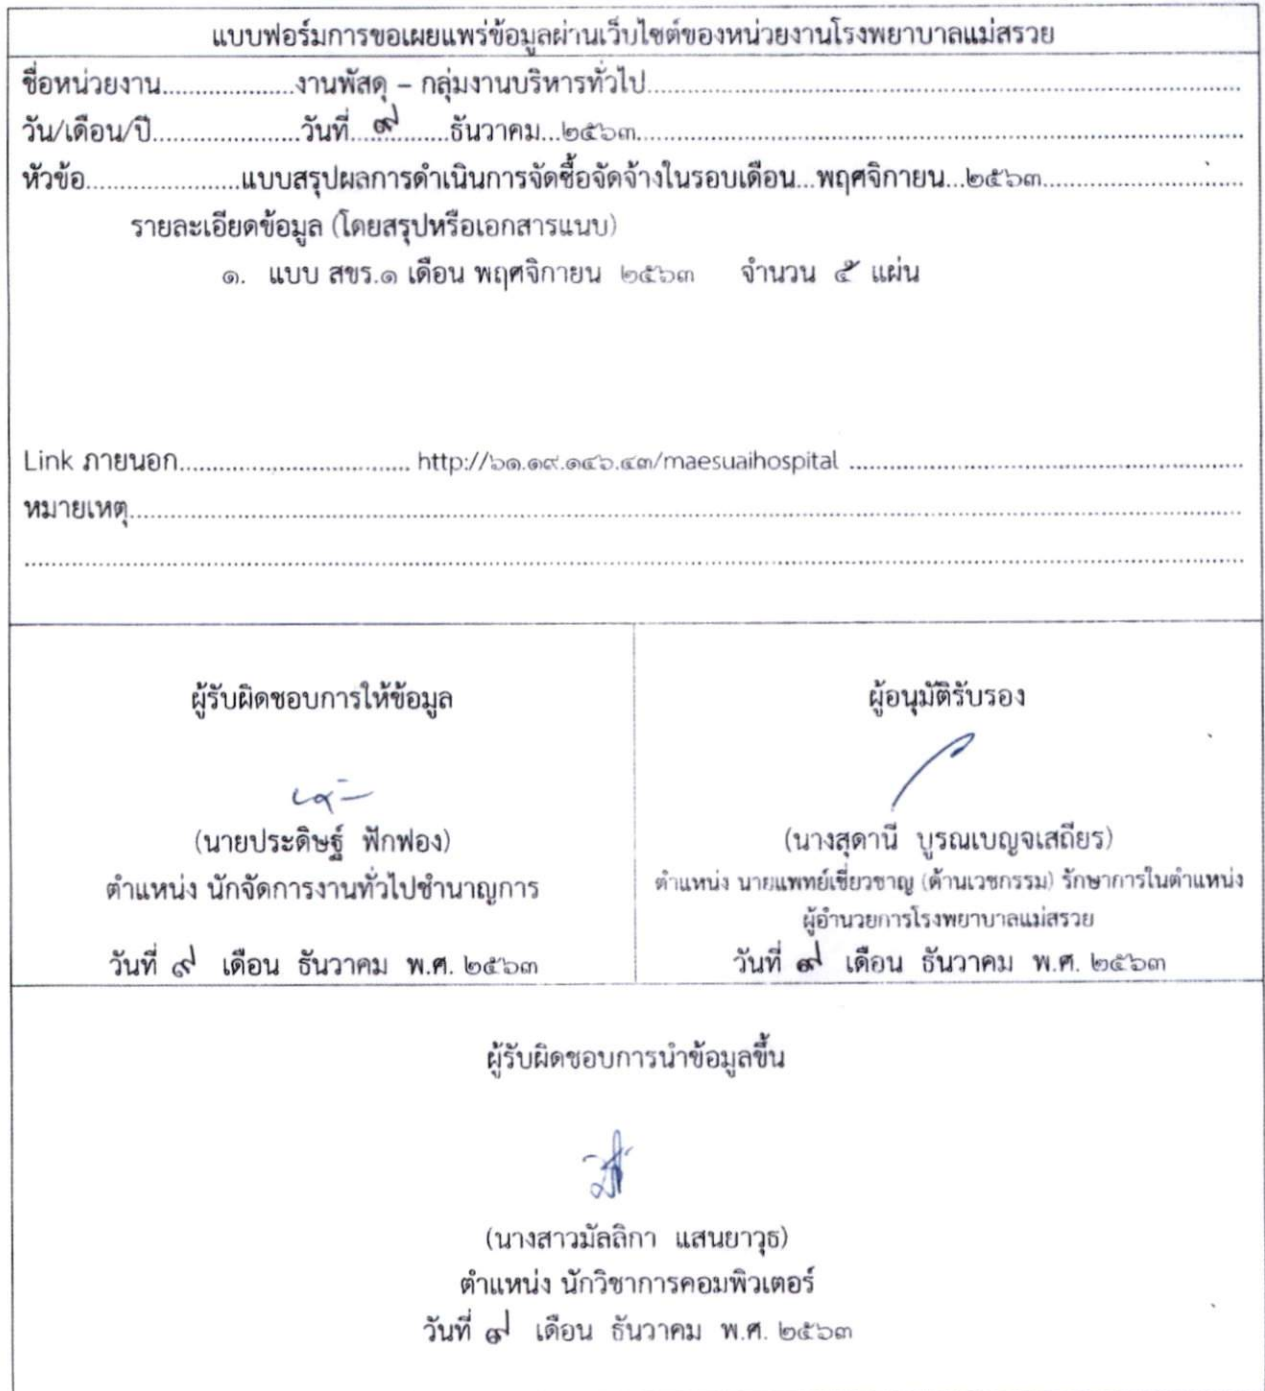 แบบฟอร์มการขอเผยแพร่ข้อมูลผ่านเว็บไซต์ของหน่วยงานโรงพยาบาลแม่สรวย
ชื่อหน่วยงาน....................งานพัสดุ – กลุ่มงานบริหารทั่วไป....................
วัน/เดือน/ปี......................วันที่....๙........ธันวาคม...๒๕๖๓....................
หัวข้อ.......................แบบสรุปผลการดำเนินการจัดซื้อจัดจ้างในรอบเดือน...พฤศจิกายน...๒๕๖๓..............................
รายละเอียดข้อมูล (โดยสรุปหรือเอกสารแนบ)
๑. แบบ สขร.๑ เดือน พฤศจิกายน ๒๕๖๓ จำนวน ๕ แผ่น
Link ภายนอก................................... http://๖๑.๑๙.๑๔๖.๔๓/maesuaihospital ............................................................
หมายเหตุ....................
....................
ผู้รับผิดชอบการให้ข้อมูล ผู้อนุมัติรับรอง
(นายประดิษฐ์ ฟักฟอง) (นางสุดานี บูรณเบญจเสถียร)
ตำแหน่ง นักจัดการงานทั่วไปชำนาญการ ตำแหน่ง นายแพทย์เชี่ยวชาญ (ด้านเวชกรรม) รักษาการในตำแหน่ง
ผู้อำนวยการโรงพยาบาลแม่สรวย
วันที่ ๙ เดือน ธันวาคม พ.ศ. ๒๕๖๓ วันที่ ๙ เดือน ธันวาคม พ.ศ. ๒๕๖๓
ผู้รับผิดชอบการนำข้อมูลขึ้น
(นางสาวมัลลิกา แสนยาวุธ)
ตำแหน่ง นักวิชาการคอมพิวเตอร์
วันที่ ๙ เดือน ธันวาคม พ.ศ. ๒๕๖๓